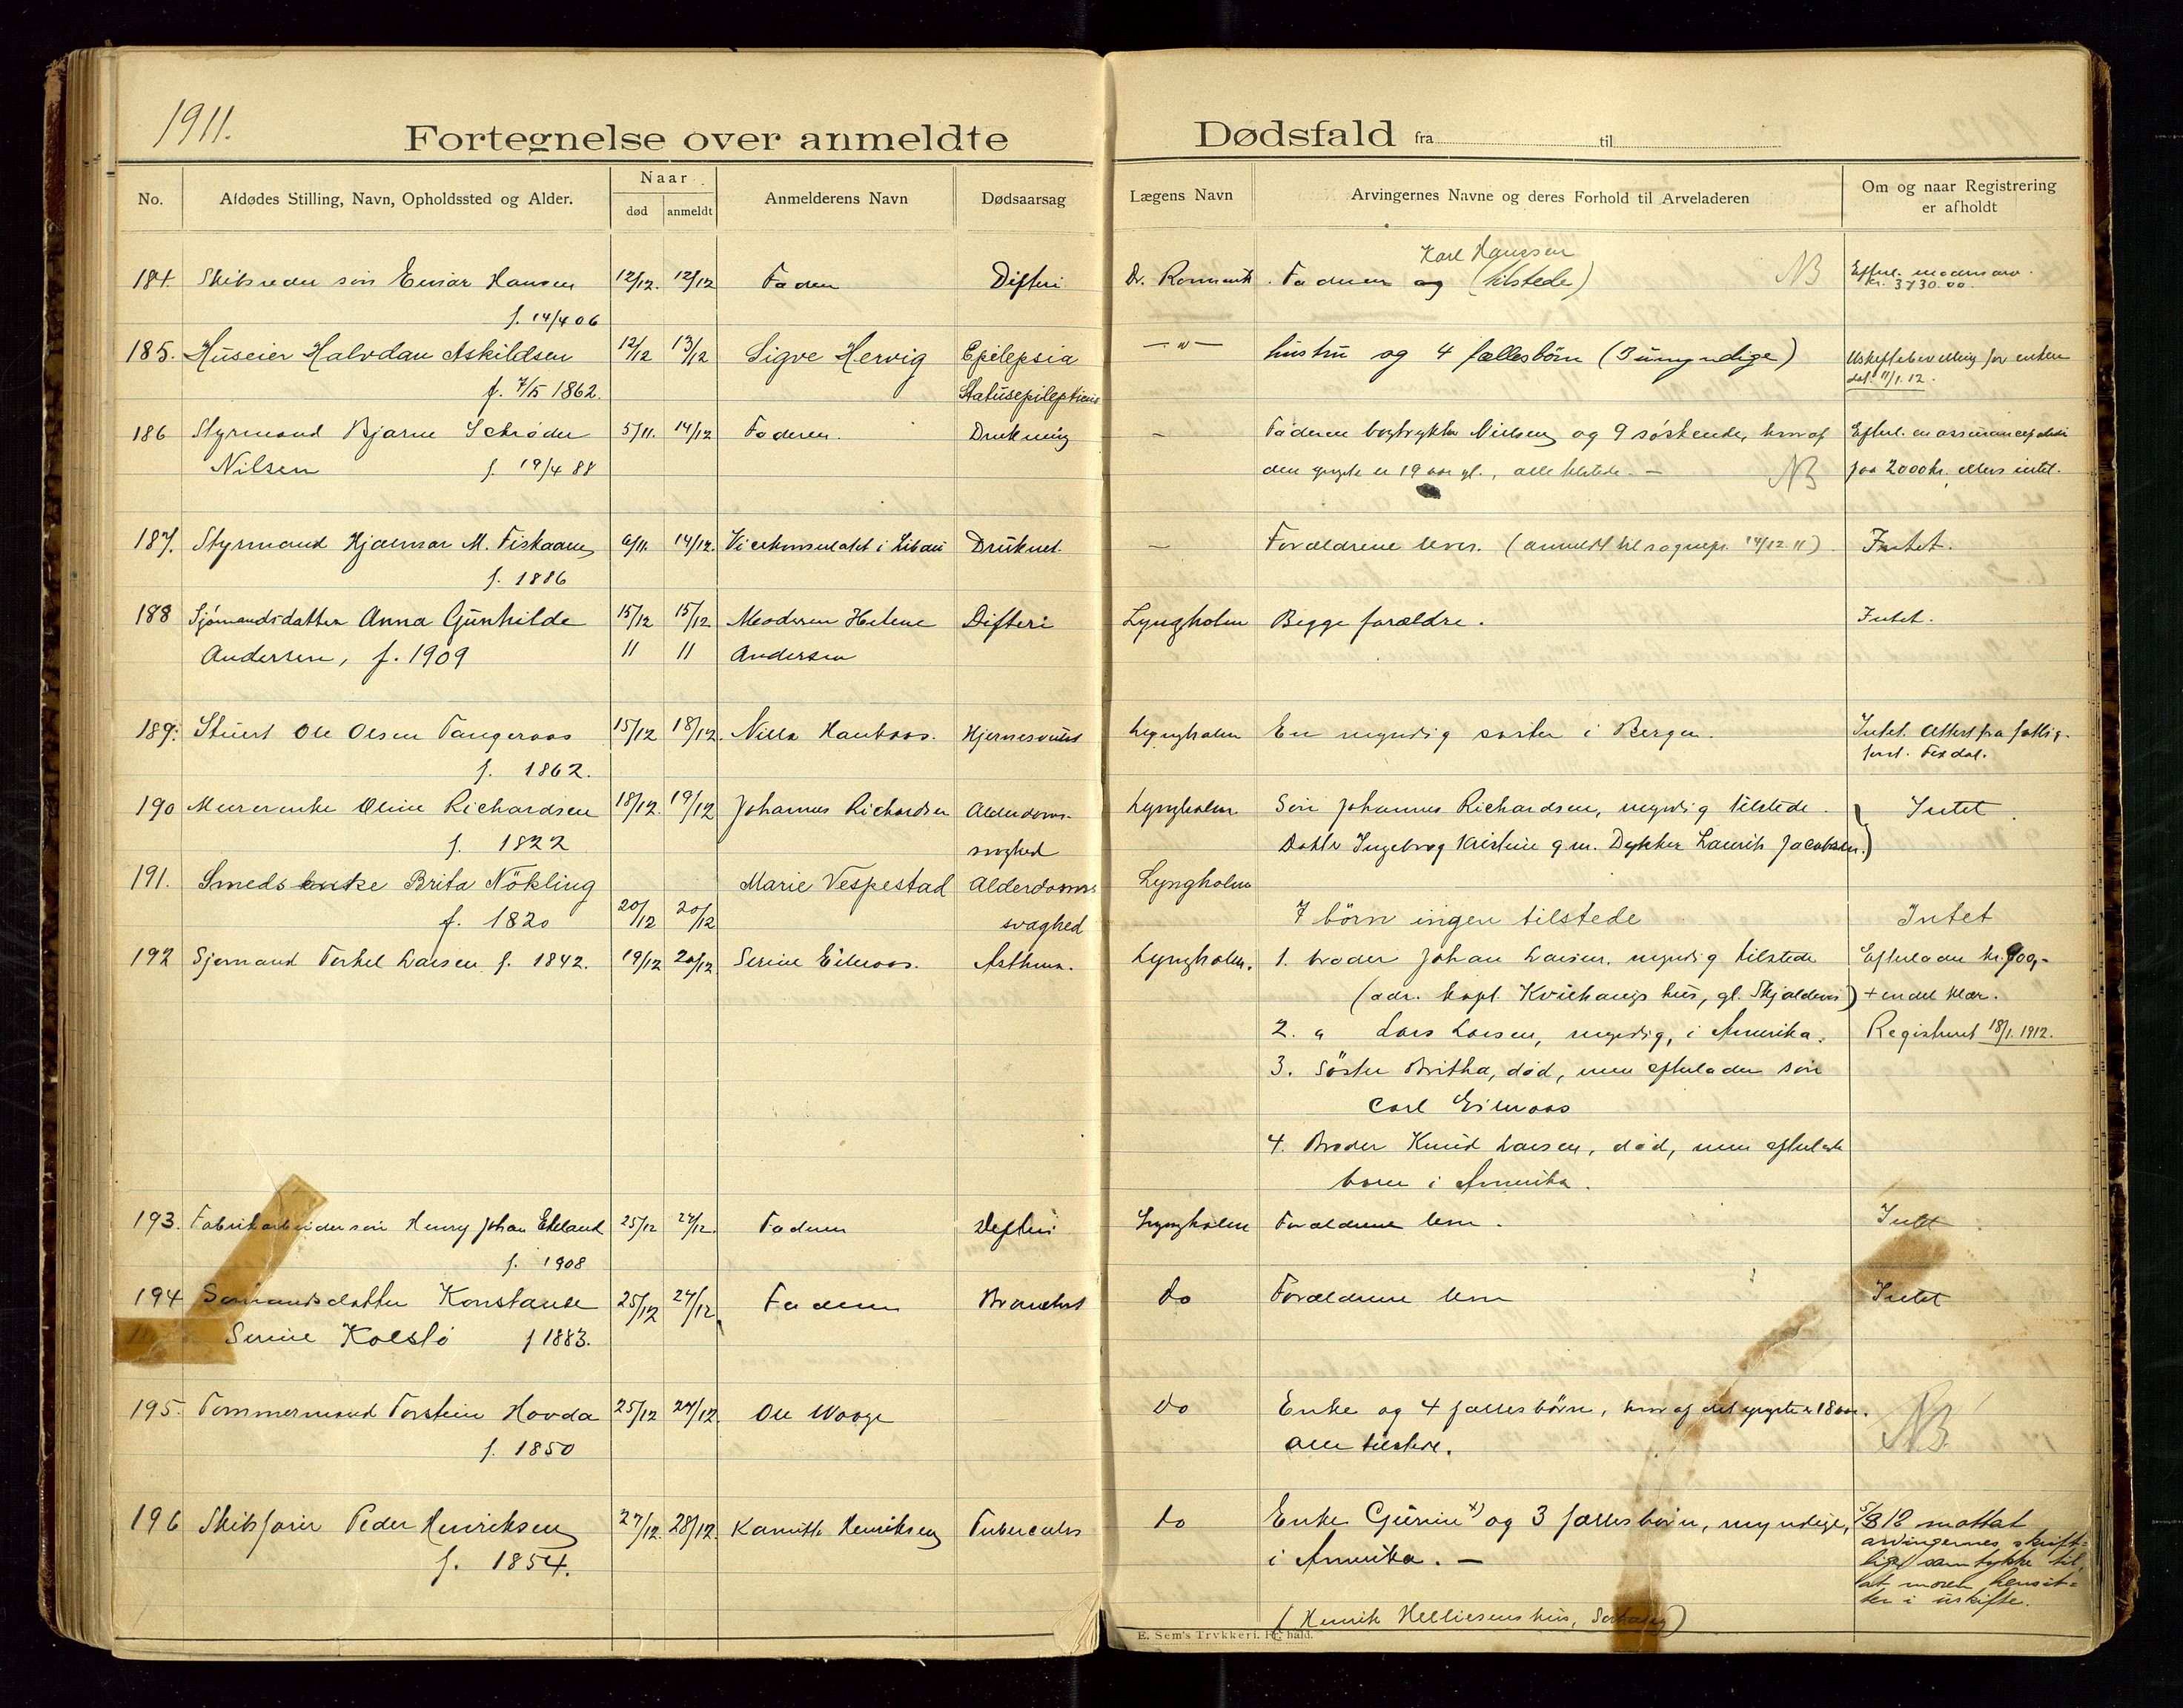 1911.
Fortegnelse over anmeldte Dødsfald fra til
No.
Afdødes Stilling, Navn, Opholdssted og Alder.
Naar
død
anmeldt
Anmelderens Navn
Dødsaarsag
Lægens Navn
Arvingernes Navne og deres Forhold til Arveladeren
Om og naar Registrering
er afholdt
Karl Hanssen
184. Skibsreder søn Einar Hansen 12/12. 12/12 Faderen Difteri Dr. Faderen og (tilstede) NB Efterl. modersarv
f. 14/4 06 kr. 3730.00.
185. Huseier Halvdan Askildsen 12/12 13/12 Sigve Hervig Epilepsia — " — hustru og 4 fællesbørn (3 umyndige) Uskiftebevilling for enken
f. 7/5 1862. Statusepilepticus dat. 11/1.12.
186 Styrmand Bjarne Schrøder 5/11. 14/12 Faderen. Drukning — Faderen bogtrykker Nielsen og 9 søskende, hvoraf Efterl. en assurancepolice
Nilsen f. 19/4 88 den yngste er 19 aar gl., alle tilstede. — NB paa 2000 kr. ellers intet.
187. Styrmand Hjalmar M. Fiskaaen 6/11. 14/12. Vicekonsulatet i Libau Druknet. — Forældrene lever. (anmeldt til sognepr. 14/12 11). Intet.
f. 1886
188 Sjømandsdatter Anna Gunhilde 15/12 15/12 Moderen Helene Difteri Lyngholm Begge forældre. Intet.
Andersen, f. 1909 11 11 Andersen
189. Stuert Ole Olsen Tangeraas 15/12 18/12. Nilla Haukaas. Hjernesvulst Lyngholm En myndig søster i Bergen. Intet. Attest fra fattig-
f. 1862.
190 Murerenke Oline Richardsen 18/12. 19/12 Johannes Richardsen Alderdoms- Lyngholm Søn Johannes Richardsen, myndig tilstede. Intet.
f. 1822 svaghed Datter Ingeborg Kristine g.m. Dykker Laurits Jacobsen.)
191. Smeds enke Brita Nökling Marie Vespestad Alderdoms Lyngholm
f. 1820 20/12 20/12 svaghed 7 börn ingen tilstede Intet
192 Sjømand Torkel Larsen f. 1842. 19/12 20/12 Serine Eileraas. Asthma. Lyngholm. 1. broder Johan Larsen. myndig tilstede Efterlader kr. 900,-
(adr. kapt. Kvilhaugs hus, gl. Skjoldevei) + endel klær.
2. " Lars Larsen, myndig, i Amerika. Registreret 18/1. 1912.
3. Söster Britha, død, men efterlader søn
Carl Eileraas
4. Broder Knud Larsen, død, men efterlader
børn i Amerika.
193. Fabrikarbeider søn Henry Johan Ekeland 25/12 27/12. Faderen Difteri Lyngholm Forældrene lever. Intet
f. 1908
194 Sømandsdatter Konstanse 25/12 27/12. Faderen do Forældrene lever Intet
Serine Kolstø f 1883.
195. Tømmermand Torstein Hovda 25/12 27/12. Ole Waage do Enke og 4 fællesbørn, hvoraf det yngste er 18 aar. NB.
f. 1850 alle tilstede.
196 Skibsfører Peder Henriksen 27/12. 28/12. Kamitte Henriksen Tuberculos do Enke Gurine x) og 3 fællesbørn, myndige, 5/3 12 mottat
f. 1854. i Amerika. — arvingernes skrift-
lige samtykke til
at moren hensit-
ter i uskifte.
(Henrik Helliesens hus, )
E. Sem's Trykkeri, Fr.hald.